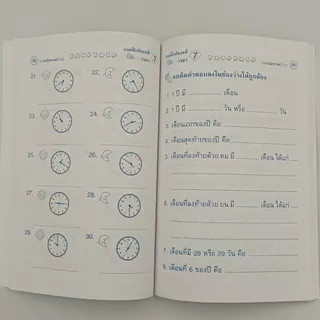 แบบฝึกหัดบทที่
7
21.
22.
23.
24.
25.
26.
27.
28.
29.
30.
แบบฝึกหัดบทที่ 7
จงเติมคำตอบลงในช่องว่างให้ถูกต้อง
1. 1 ปี มี ........ เดือน
2. 1 ปี มี ........ วัน หรือ ........ วัน
3. เดือนแรกของปี คือ
4. เดือนสุดท้ายของปี คือ
5. เดือนที่ลงท้ายด้วย คม มี ........ เดือน ได้แก่
6. เดือนที่ลงท้ายด้วย ยน มี ........ เดือน ได้แก่
7. เดือนที่มี 28 หรือ 29 วัน คือ
8. เดือนที่ 6 ของปี คือ